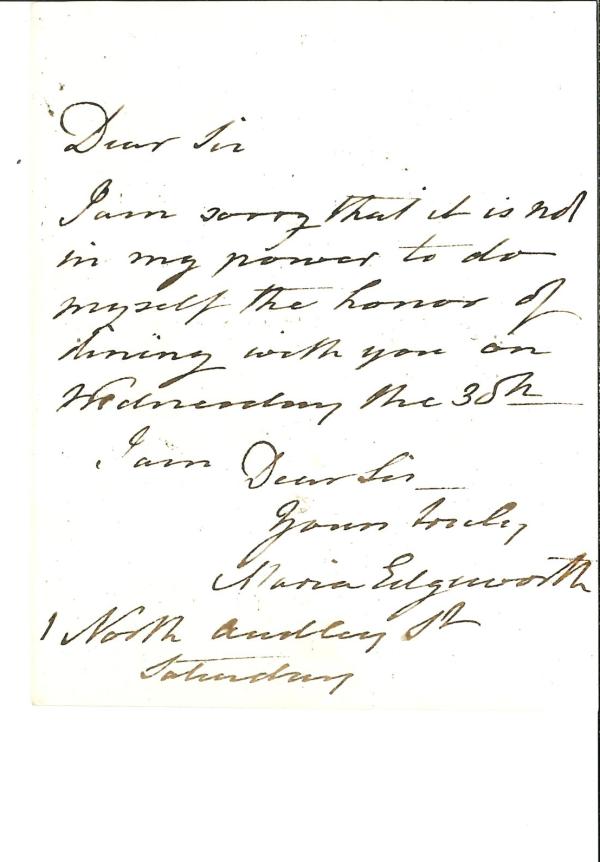 Dear Sir
I am sorry that it is not
in my power to do
myself the honor of
dining with you on
Wednesday the 30th
I am Dear Sir
Yours truly
Maria Edgeworth
1 North Audley St
Saturday